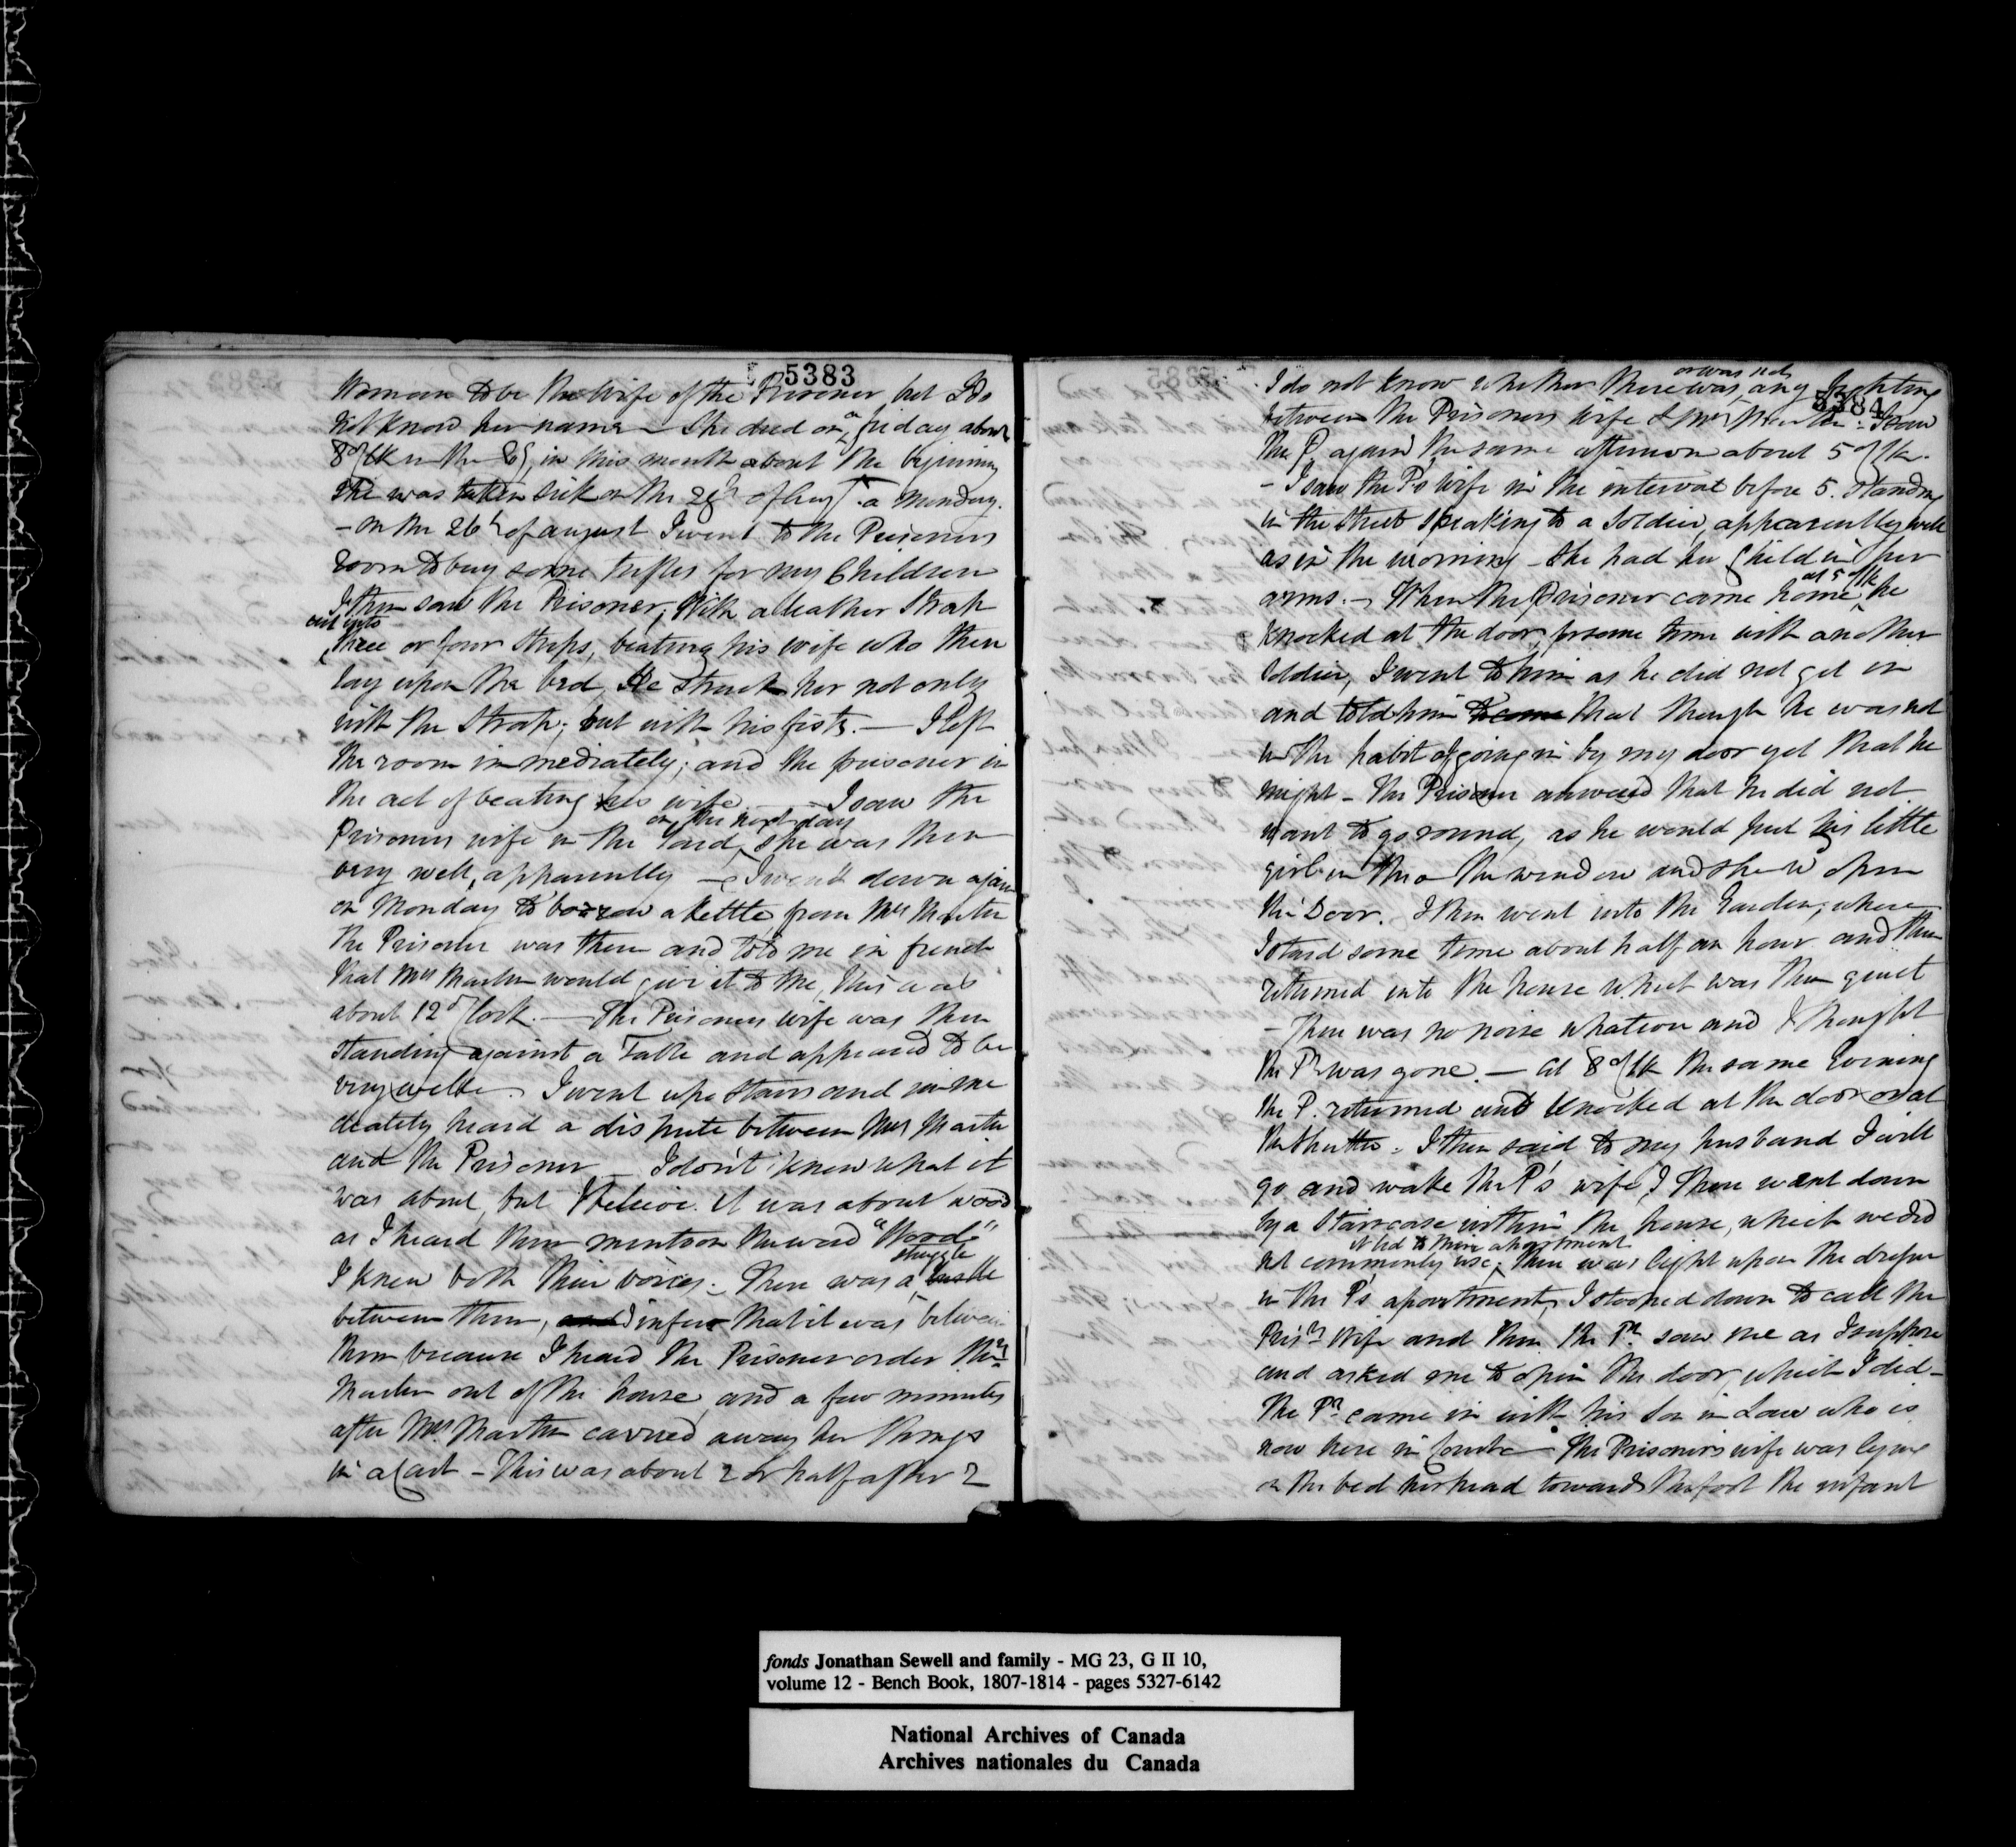 5383
Woman to be the Wife of the Prisoner, but I do
not know her name – She died on a friday about
8 o'Clk in the Eg, in this month about the beginning
She was taken sick on the 28th of Augt. a Monday.
– On the 26th of august I went to the Prisoners
Room to buy some trifles for my Children
I then saw the Prisoner, With a leather Strap
cut into
three or four strips, beating his wife who then
lay upon the bed, He struck her not only
with the Strap; but with his fists. – I left
the room immediately; and the prisoner in
the act of beating his wife – I saw the
on the next day
Prisoners wife in the Yard, she was then
very well, apparently – I went down again
on Monday to borrow a kettle from Mrs Martin
The Prisoner was there and told me in french
that Mrs Martin would give it to me, this was
about 12 o'Clock. – The Prisoners wife was then
standing against a Table and appeared to be
very well. I went up stairs and imme
diately heard a dispute between Mrs Martin
and the Prisoner – I don't know what it
was about, but I believe it was about wood
as I heard them mention the word "Wood"
struggle
I knew both their voices. There was a bustle
between them, and I infer that it was between
them because I heard the Prisoner order Mrs
Martin out of the house, and a few minutes
after Mrs Martin carried away her things
in a Cart – This was about 2 or half after 2
5384
or was not
I do not know whether there was any fighting
between the Prisoners wife & Mrs Martin. I saw
the P. again the same afternoon about 5 o'Clk.
– I saw the P's Wife in the interval before 5. standing
in the street speaking to a Soldier, apparently well
as in the morning – She had her Child in her
at 5 o'Clk
arms. – When the Prisoner came home, he
knocked at the door for some time with another
Soldier, I went to him as he did not get in
and told him to come that though he was not
in the habit of going in by my door yet that he
might – The Prisoner answered that he did not
want to go round, as he would put his little
girl in thro the window and she would open
the Door. I then went into the Garden, where
I staid some time about half an hour and then
returned into the house which was then quiet
– There was no noise whatever and I thought
the Pr was gone. – At 8 o'Clk the same Evening
the P. returned and knocked at the door or at
the Shutter. I then said to my husband I will
go and wake the P's wife, I then went down
by a Staircase within the house, which we did
it led to their apartment
not commonly use, there was light upon the
in the P's apartment, I stooped down to call the
Prisrs Wife and then the Pr saw me as I suppose
and asked me to open the door, which I did –
The Pr came in with his Son in Law who is
now here in Court – The Prisoner's wife was lying
on the bed her head towards the foot the infant
fonds Jonathan Sewell and family - MG 23, G II 10,
volume 12 - Bench Book, 1807-1814 - pages 5327-6142
National Archives of Canada
Archives nationales du Canada